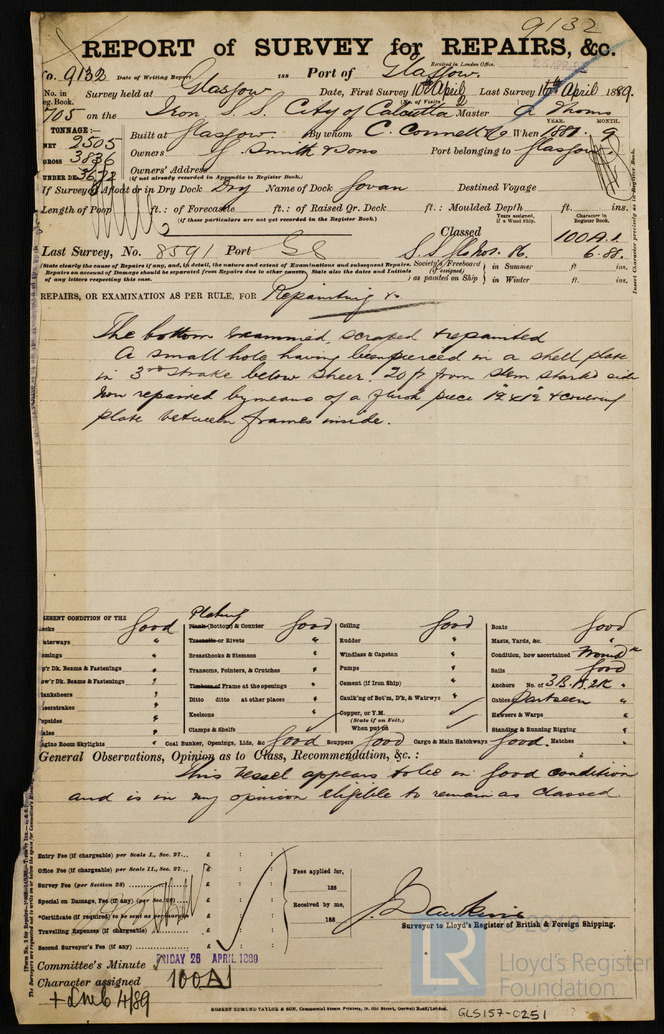 9132
REPORT of SURVEY for REPAIRS, &c.
No. 9132 Date of Writing Report 188 Port of Glasgow. Received in London Office.
No. in Reg. Book. Survey held at Glasgow Date, First Survey 10th April Last Survey 16th April 1889.
(No. of Visits 2
705 on the Iron S.S. City of Calcutta Master
TONNAGE:— YEAR. MONTH.
NET 2505 Built at Glasgow By whom C. Connell & Co When 1881. 9
GROSS 3836 Owners G. Smith & Sons Port belonging to Glasgow
UNDER DK 3672 Owners' Address
(if not already recorded in Appendix to Register Book.)
If Surveyed Afloat or in Dry Dock Dry Name of Dock Govan Destined Voyage
Length of Poop ft.: of Forecastle ft.: of Raised Qr. Deck ft.: Moulded Depth ft. ins.
(if these particulars are not yet recorded in the Register Book.) Years assigned, if a Wood Ship. Character in Register Book.
Classed 100A.1
Last Survey, No. 8591 Port Gls 6.88.
(State clearly the cause of Repairs if any, and, in detail, the nature and extent of Examinations and subsequent Repairs. Society's Freeboard (if assigned) as painted on Ship in Summer ft ins.
Repairs on account of Damage should be separated from Repairs due to other causes. State also the dates and initials in Winter ft. ins.
of any letters respecting this case.
REPAIRS, OR EXAMINATION AS PER RULE, FOR Repainting &c
The bottom examined, scraped & repainted
A small hole having been pierced in a shell plate
in 3rd strake below sheer. 20ft from stem starbd side
now repaired by means of a flush piece 12" x 12" & covering
plate between frames inside.
PRESENT CONDITION OF THE
Decks Good
Waterways "
Comings "
Up'r Dk. Beams & Fastenings "
Low'r Dk. Beams & Fastenings "
Planksheers "
Sheerstrakes "
Topsides "
Wales "
Engine Room Skylights "
Plating
Plank (Bottom) & Counter Good
Treenails or Rivets "
Breasthooks & Stemson "
Transoms, Pointers, & Crutches "
Timbers of Frame at the openings "
Ditto ditto at other places "
Keelsons "
Clamps & Shelfs
Coal Bunker, Openings, Lids, &c Good
Ceiling Good
Rudder "
Windlass & Capstan "
Pumps "
Cement (if Iron Ship) "
Caulk'ng of Bot'm, D'k, & Watrwys
Copper, or Y.M.
(State if on Felt.)
When put on
Scuppers Good Cargo & Main Hatchways Good Hatches "
Boats Good
Masts, Yards, &c. "
Condition, how ascertained
Sails Good
Anchors No. of 3B. 1S. 2K "
Cables Part seen
Hawsers & Warps "
Standing & Running Rigging "
General Observations, Opinion as to Class, Recommendation, &c. :
This vessel appears to be in good condition
and is in my opinion eligible to remain as classed.
Entry Fee (if chargeable) per Scale I., Sec. 27... £ : :
Office Fee (if chargeable) per Scale II., Sec. 27... £ : :
Survey Fee (per Section 28) £ : :
Special on Damage, Fee (if any) (per Sec. 28) £ : :
*Certificate (if required) to be sent as per margin £ : :
Travelling Expenses (if chargeable) £ : :
Second Surveyor's Fee (if any) £ : :
Fees applied for,
188
Received by me,
188
Surveyor to Lloyd's Register of British & Foreign Shipping.
Committee's Minute FRIDAY 26 APRIL 1889
Character assigned 100A1
+ LMC 4/89
ROBERT EDMUND TAYLOR & SON, Commercial Steam Printers, 19, Old Street, Goswell Road, London.
© 2019
LR
Lloyd's Register
Foundation
GLS157-0251